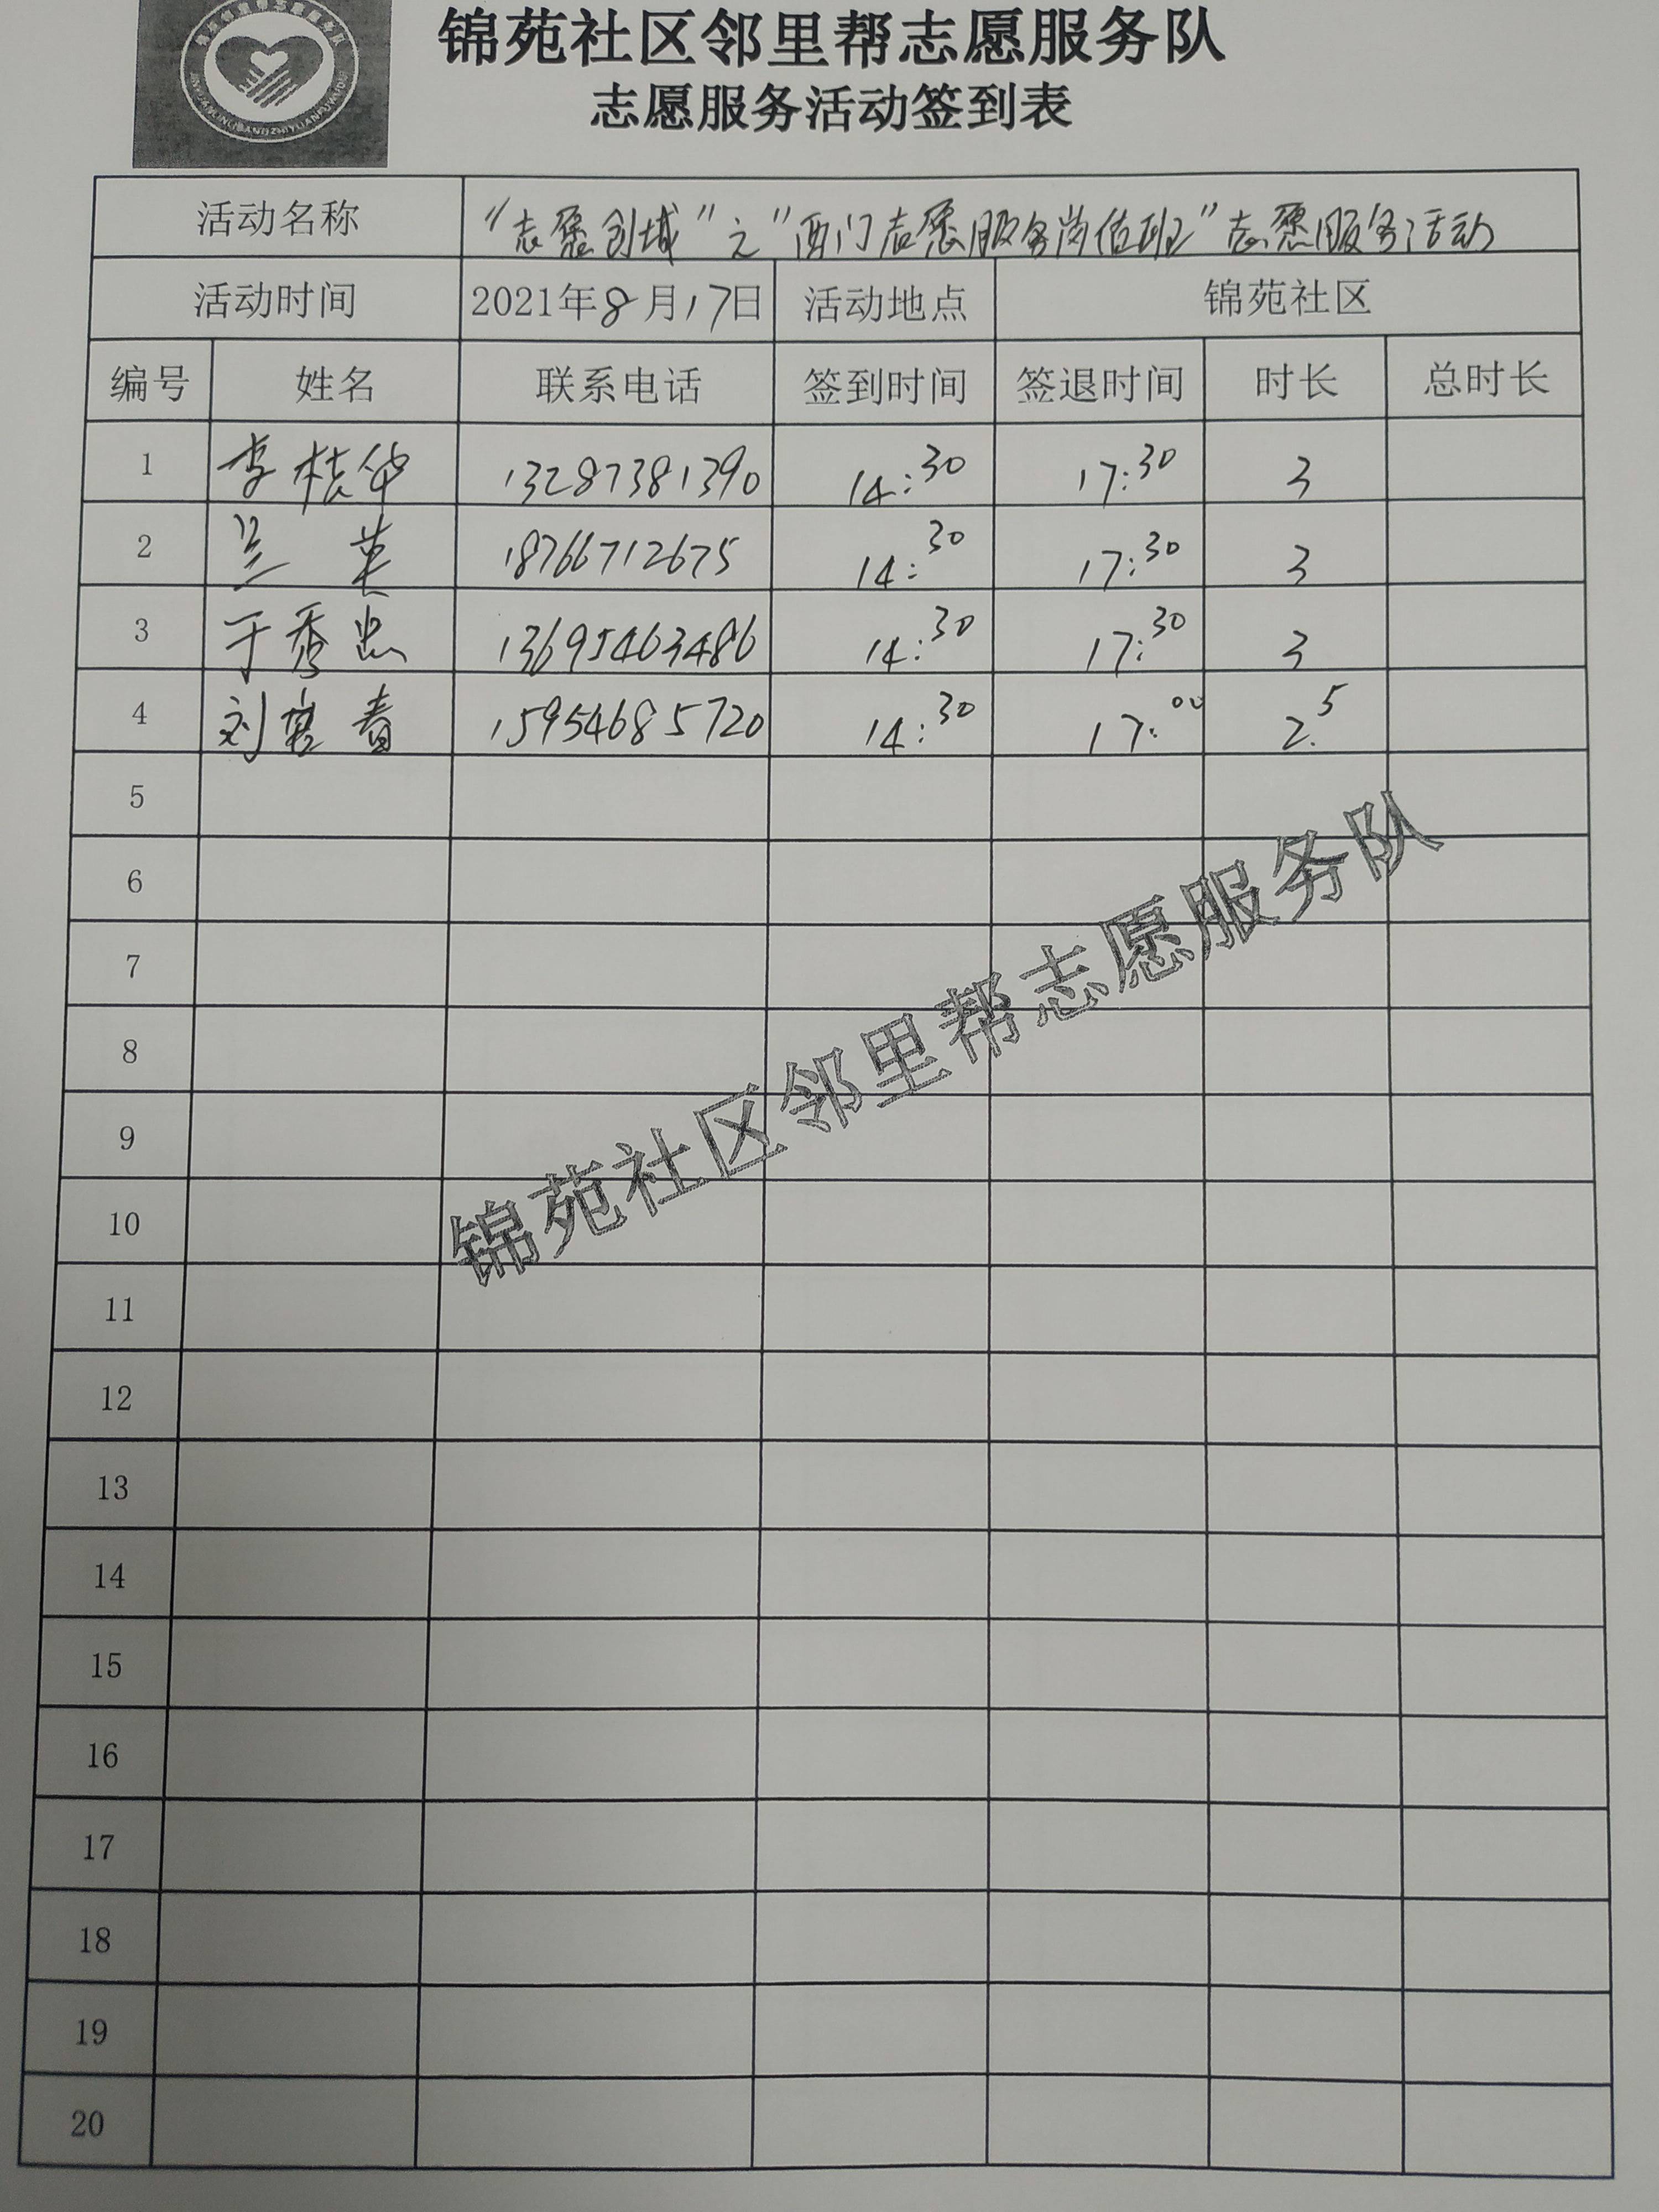 锦苑社区邻里帮志愿服务队
志愿服务活动签到表
活动名称 "志愿创城"之"西门志愿服务岗值班"志愿服务活动
活动时间 2021年8月17日 活动地点 锦苑社区
编号 姓名 联系电话 签到时间 签退时间 时长 总时长
1 李桂华 13287381390 14:30 17:30 3
2 兰英 18766712675 14:30 17:30 3
3 于秀忠 13695463486 14:30 17:30 3
4 刘春 15954685720 14:30 17:00 2.5
5
6
7
8
9
10
11
12
13
14
15
16
17
18
19
20
锦苑社区邻里帮志愿服务队